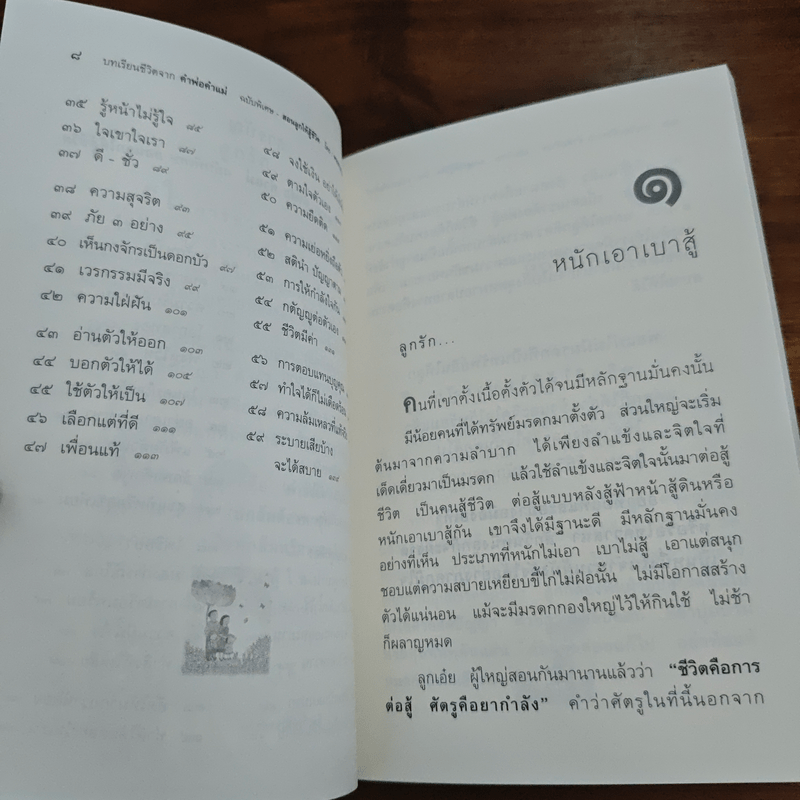 ๘ บทเรียนชีวิตจาก คำพ่อคำแม่ ฉบับพิเศษ - สอนลูกให้สู้ชีวิต
๓๕ รู้หน้าไม่รู้ใจ ๘๕
๓๖ ใจเขาใจเรา ๘๗
๓๗ ดี - ชั่ว ๘๙
๓๘ ความสุจริต ๙๓
๓๙ ภัย ๓ อย่าง ๙๕
๔๐ เห็นกงจักรเป็นดอกบัว ๙๗
๔๑ เวรกรรมมีจริง ๙๙
๔๒ ความใฝ่ฝัน ๑๐๑
๔๓ อ่านตัวให้ออก ๑๐๓
๔๔ บอกตัวให้ได้ ๑๐๕
๔๕ ใช้ตัวให้เป็น ๑๐๗
๔๖ เลือกแต่ที่ดี ๑๑๑
๔๗ เพื่อนแท้ ๑๑๓
๔๘ จงใช้เงิน
๔๙ ตามใจตัวเอง
๕๐ ความยึดติด
๕๑ ความเย่อหยิ่ง
๕๒ สตินำ ปัญญาตาม
๕๓ การให้กำลังใจกัน
๕๔ กตัญญูต่อตัวเอง
๕๕ ชีวิตมีค่า
๕๖ การตอบแทนบุญคุณ
๕๗ ทำใจได้ก็ไม่เดือดร้อน
๕๘ ความล้มเหลวที่แท้จริง
๕๙ ระบายเสียบ้าง
จะได้สบาย
๑
หนักเอาเบาสู้
ลูกรัก...
คนที่เขาตั้งเนื้อตั้งตัวได้จนมีหลักฐานมั่นคงนั้น
มีน้อยคนที่ได้ทรัพย์มรดกมาตั้งตัว ส่วนใหญ่จะเริ่ม
ต้นมาจากความลำบาก ได้เพียงลำแข้งและจิตใจที่
เด็ดเดี่ยวมาเป็นมรดก แล้วใช้ลำแข้งและจิตใจนั้นมาต่อสู้
ชีวิต เป็นคนสู้ชีวิต ต่อสู้แบบหลังสู้ฟ้าหน้าสู้ดินหรือ
หนักเอาเบาสู้กัน เขาจึงได้มีฐานะดี มีหลักฐานมั่นคง
อย่างที่เห็น ประเภทที่หนักไม่เอา เบาไม่สู้ เอาแต่สนุก
ชอบแต่ความสบายเหยียบขี้ไก่ไม่ฝ่อนั้น ไม่มีโอกาสสร้าง
ตัวได้แน่นอน แม้จะมีมรดกกองใหญ่ไว้ให้กินใช้ ไม่ช้า
ก็ผลาญหมด
ลูกเอ๋ย ผู้ใหญ่สอนกันมานานแล้วว่า “ชีวิตคือการ
ต่อสู้ ศัตรูคือยากำลัง” คำว่าศัตรูในที่นี้นอกจาก